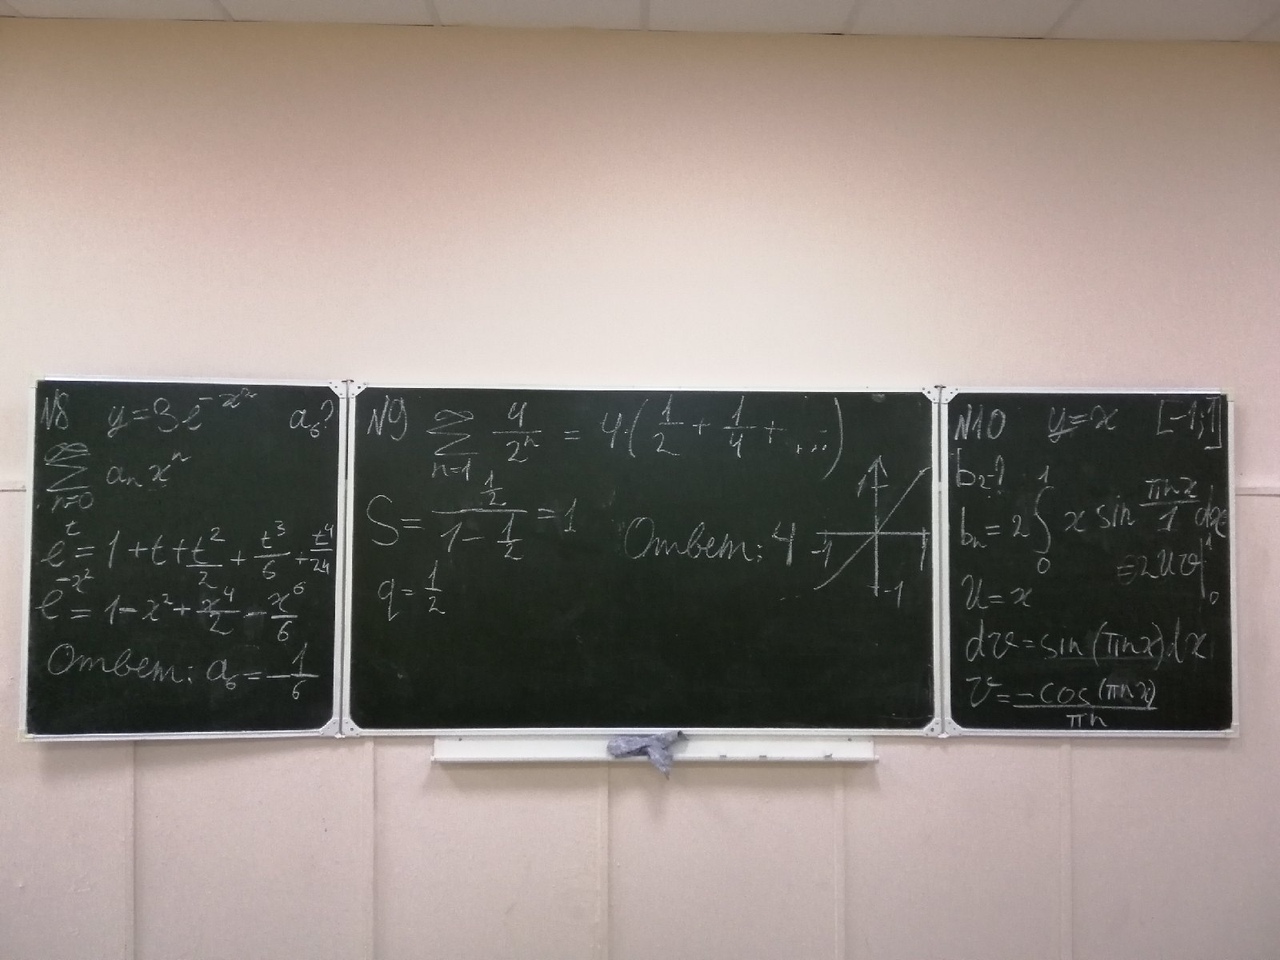 №8 y=3e^{-x²} a₆?
∑_{n=0}^{∞} aₙxⁿ
e^t = 1+t+t²/2+t³/6+t⁴/24
e^{-x²} = 1-x²+x⁴/2-x⁶/6
Ответ: a₆=-1/6
№9 ∑_{n=1}^{∞} 4/2ⁿ = 4·(1/2+1/4+...)
S=(1/2)/(1-1/2)=1 Ответ: 4
q=1/2
1
-1 1
-1
№10 y=x [-1;1]
b₂-?
bₙ=2∫₀¹ x sin πnx/1 dx
=2uv|₀¹
U=x
dv=sin(πnx)dx
v=-cos(πnx)/πn